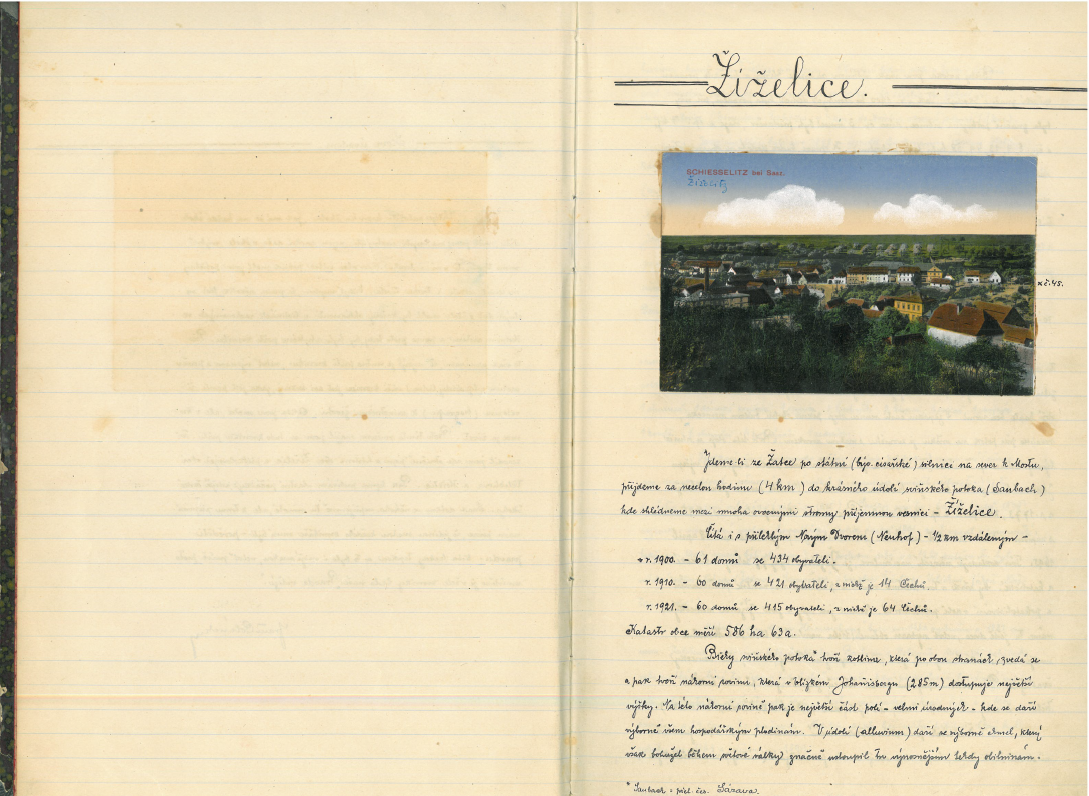 Žíželice.
SCHIESSELITZ bei Saaz.
Žiželitz
x č. 45.
Jdeme-li ze Žatce po státní (býv. císařské) silnici na sever k Mostu,
přijdeme za necelou hodinu (4 km) do krásného údolí sviňského potoka (Saubach)
kde shlédneme mezi mnoha ovocnými stromy příjemnou vesnici – Žíželice.
Čítá i s přilehlým Novým Dvorem (Neuhof) – 1/2 km vzdáleným –
r. 1900. – 61 domů se 434 obyvateli.
r. 1910. – 60 domů se 421 obyvateli, z nichž je 14 Čechů.
r. 1921. – 60 domů se 415 obyvateli, z nichž je 64 Čechů.
Katastr obce měří 586 ha 63 a.
Břehy sviňského potoka* tvoří kotlinu, která po obou stranách, zvedá se
a pak tvoří náhorní rovinu, která v blízkém Johannisbergu (285 m) dostupuje největší
výšky. Na této náhorní rovině pak je největší část polí – velmi úrodných – kde se daří
výborně všem hospodářským plodinám. V údolí (alluvium) daří se výborně chmel, který
však bohužel během světové války značně ustoupil tu výnosnějším tehdy obilninám.
* Saubach = při. čes. Sázava.